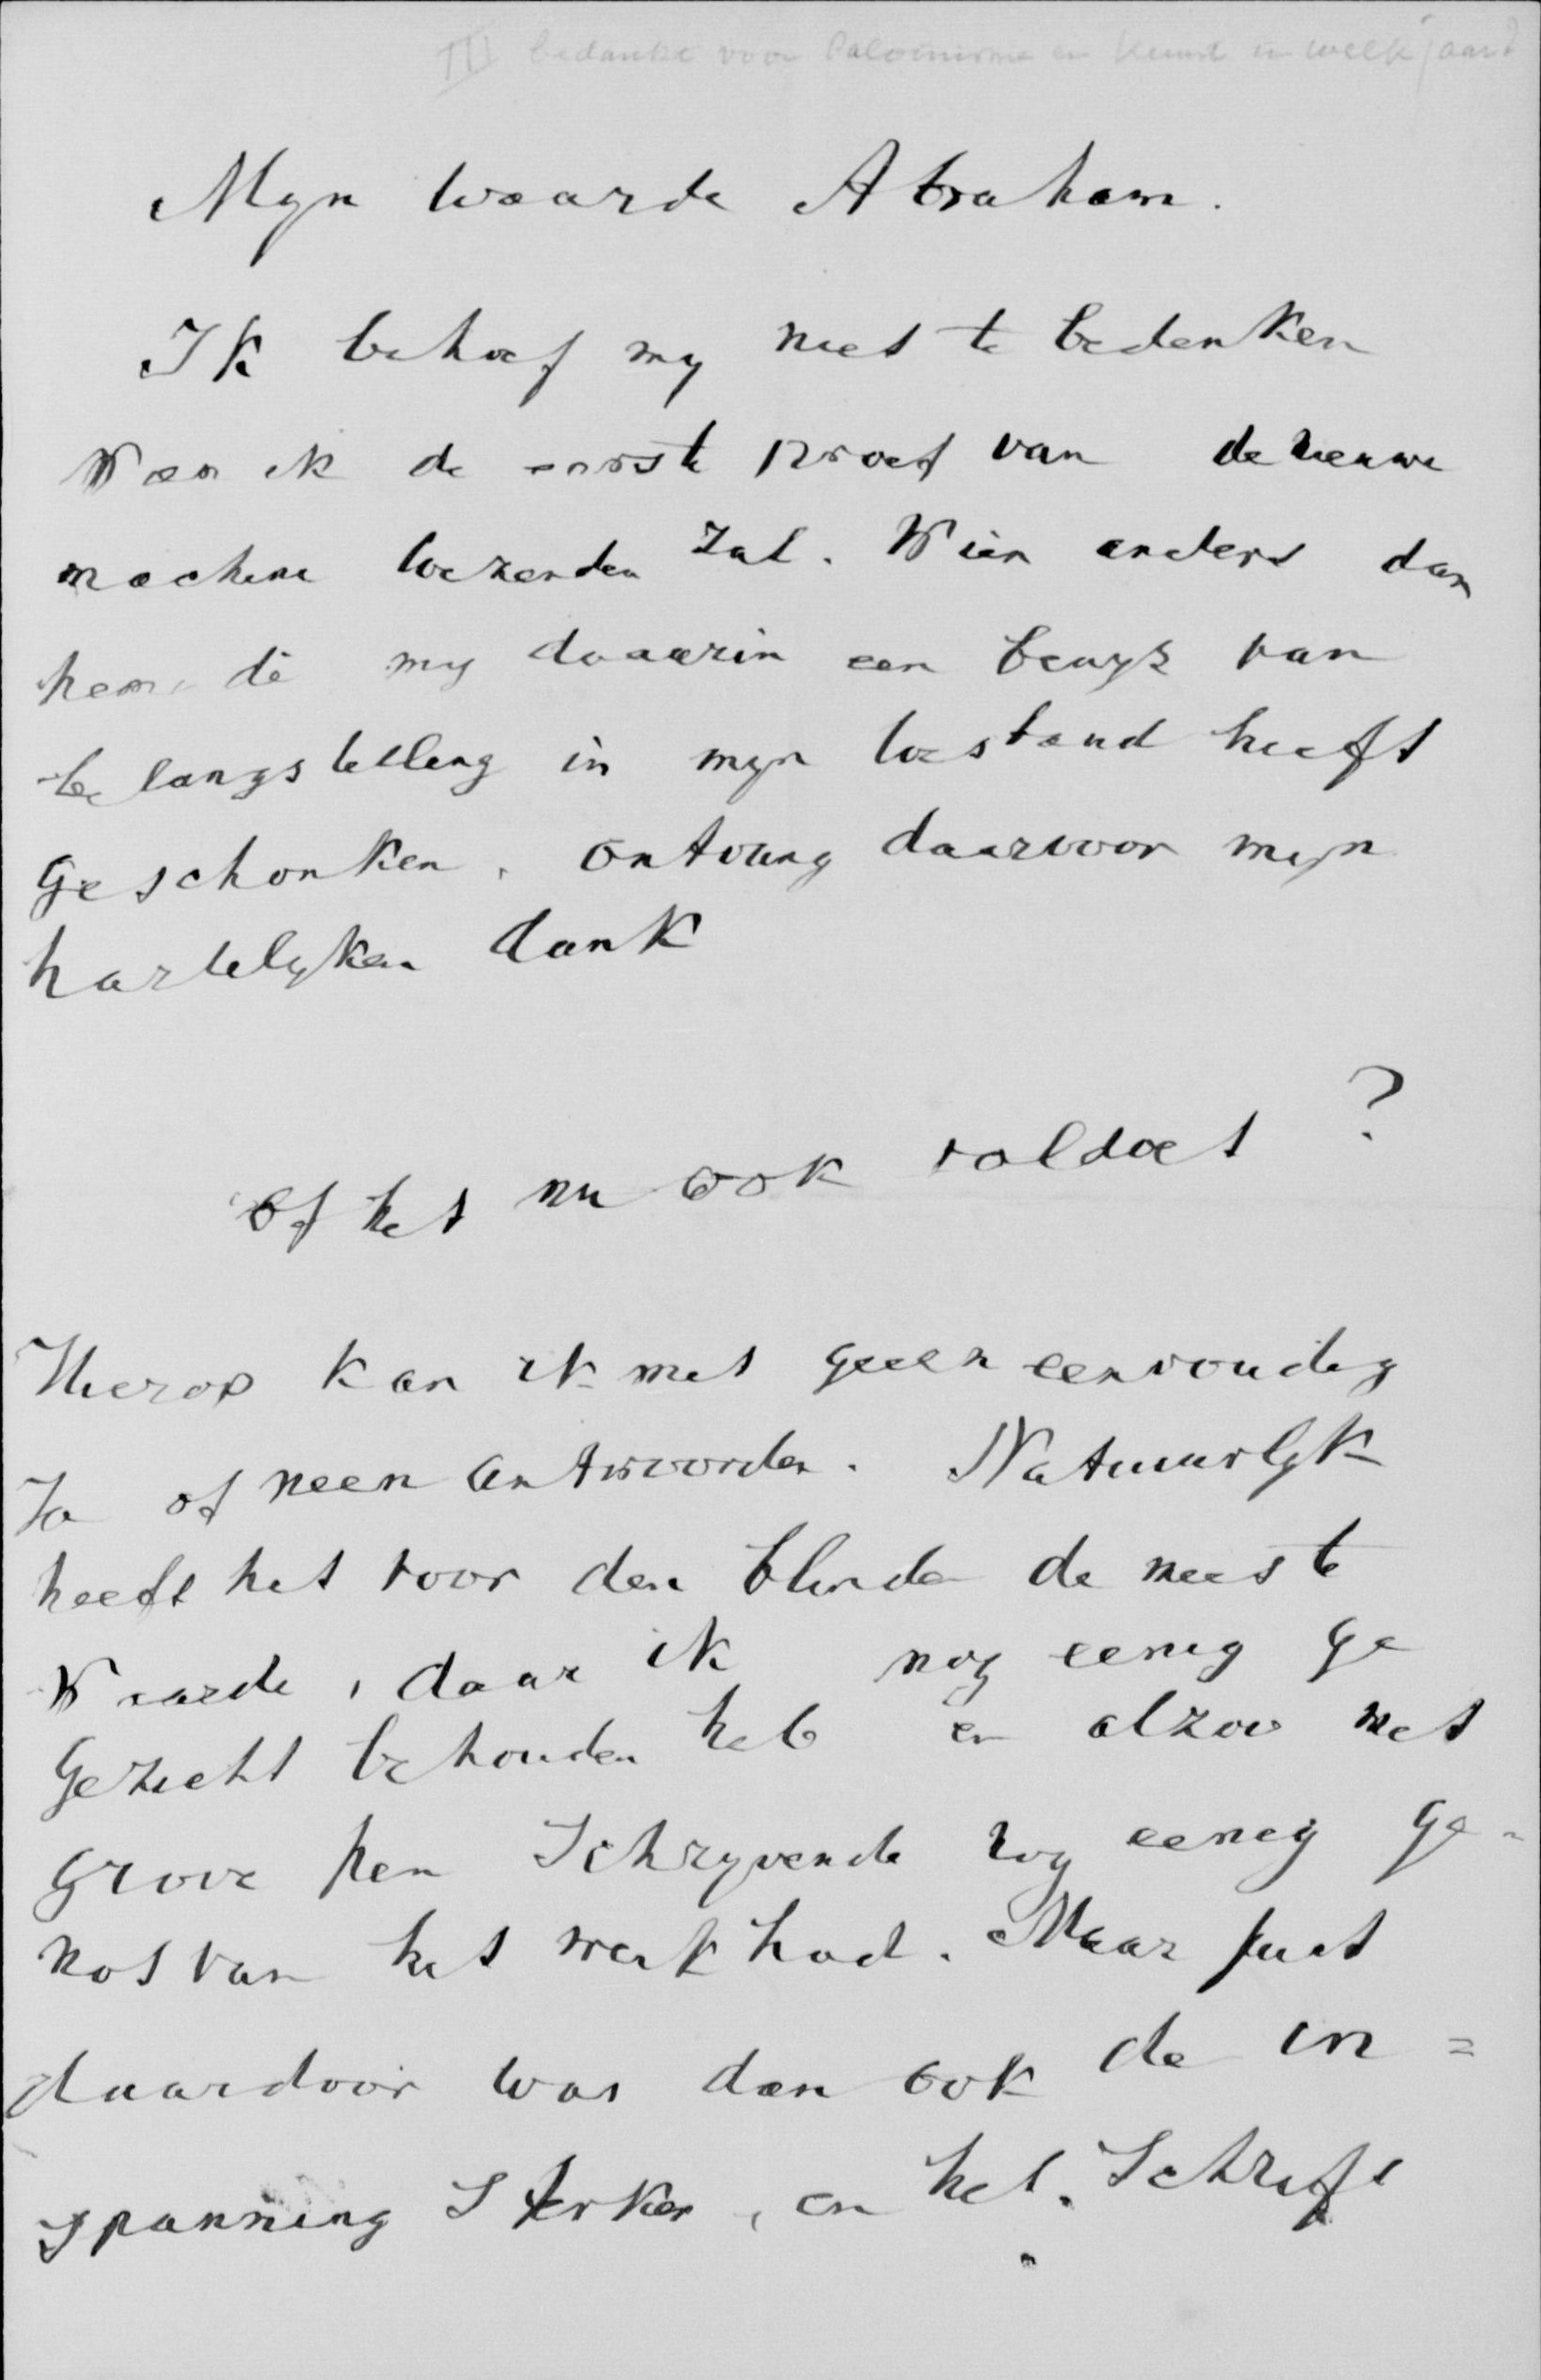 III bedankt voor Calvinisme en Kunst in welk jaar?
Myn waarde Abraham.
Ik behoef my niet te bedenken
Wien ik de eerste proef van de nieuwe
machine toezenden zal. Wien anders dan
hem die my daaarin een bewys van
belangstelling in myn toestand heeft
geschonken, ontvang daarvoor myn
hartelyken dank
of het nu ook voldoet ?
Hierop kan ik met geen eenvoudig
Ja of neen antwoorden. Natuurlyk
heeft het voor den blinde de meeste
Waarde, daar ik nog eenig ge
gezicht behouden heb en alzoo met
grove pen Schryvende nog eenig ge-
not van het werk had. Maar juist
daardoor was dan ook de in =
spanning Sterker, en het Schrift